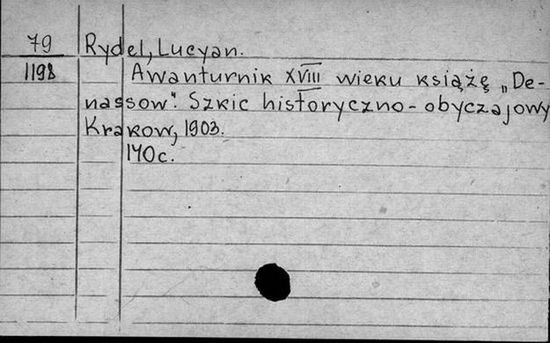 79 Rydel, Lucyan.
1198 Awanturnik XVIII wieku książę „De-
nassow". Szkic historyczno-obyczajowy
Krakow, 1903.
140 c.